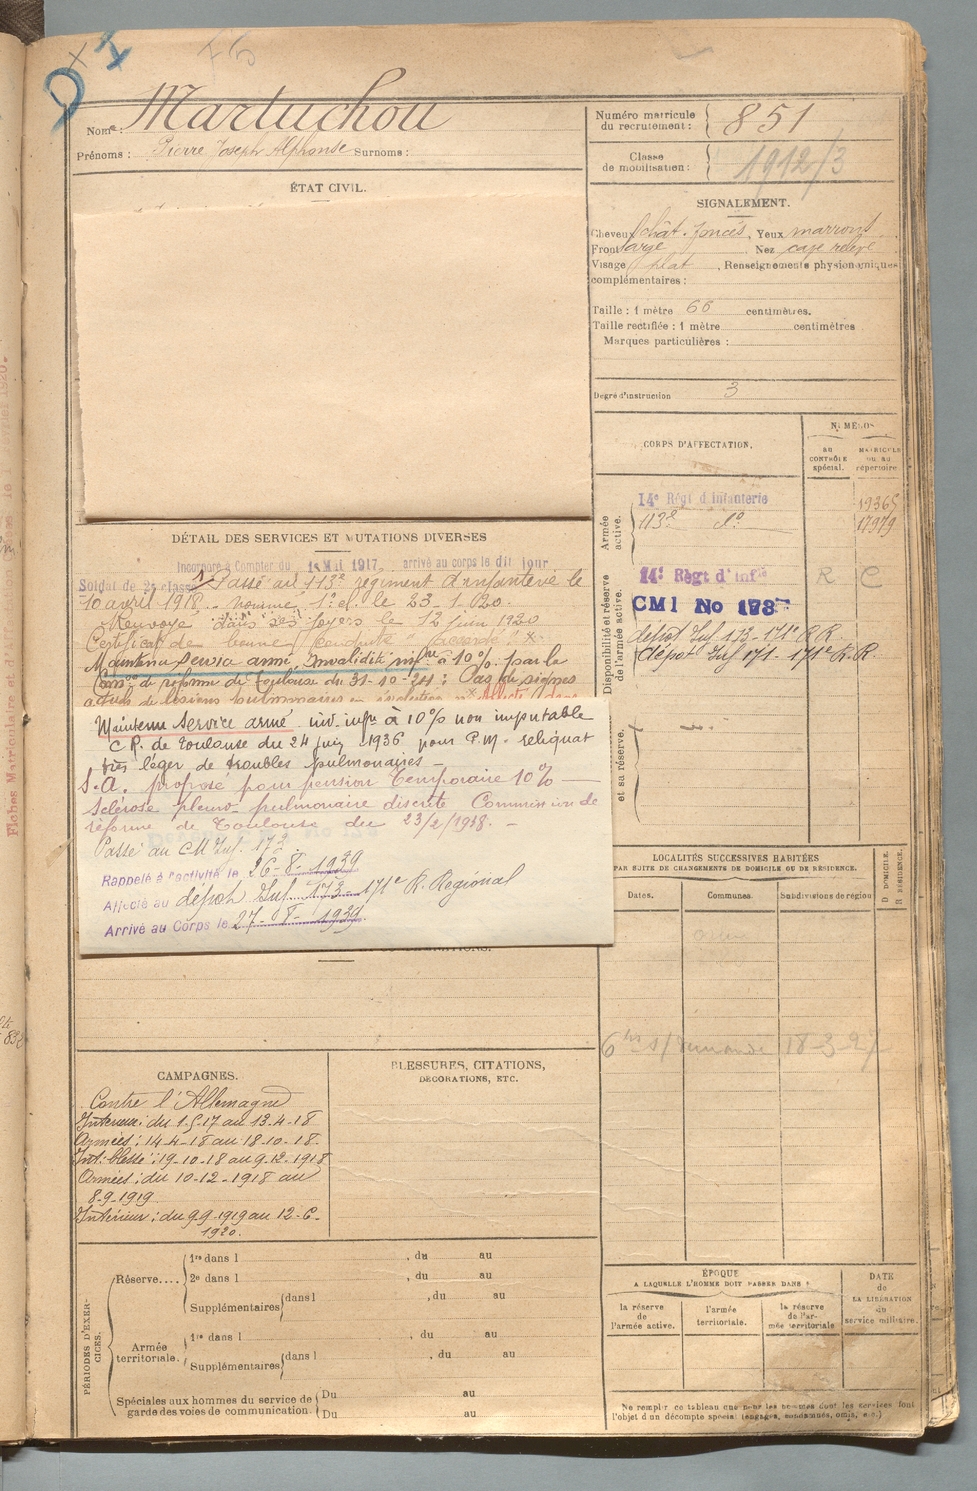 Nom : Martuchou
Prénoms : Pierre Joseph Alphonse Surnoms :
Numéro matricule
du recrutement : 851
Classe
de mobilisation : 1912/3
ÉTAT CIVIL.
SIGNALEMENT.
Cheveux chât. foncés, Yeux marrons
Front large Nez cave relevé
Visage plat, Renseignements physionomiques
complémentaires :
Taille : 1 mètre 66 centimètres.
Taille rectifiée : 1 mètre centimètres
Marques particulières :
Degré d'instruction 3
CORPS D'AFFECTATION.
NUMÉROS
au
CONTRÔLE
spécial.
MATRICULE
ou au
répertoire.
Armée
active.
14e Régt d'Infanterie 19365
113e do 17979
Disponibilité et réserve
de l'armée active.
14e Régt d'Infie R C
CMI No 178
dépôt Inf 173 - 171e R.R.
dépôt Inf 171 - 171e R.R.
et sa réserve.
DÉTAIL DES SERVICES ET MUTATIONS DIVERSES
Incorporé à Compter du 1er Mai 1917, arrivé au corps le dit jour
Soldat de 2e classe Passé au 113e régiment d'infanterie le
10 avril 1918. Nommé 1e cl. le 23-1-20.
Renvoyé dans ses foyers le 12 juin 1920
Certificat de bonne conduite "accordé"
Maintenu service armé, Invalidité infre à 10% par la
Comon de réforme de Toulouse du 31-10-24 : Pas de signes
actuels de lésions pulmonaires en évolution Affecté dans
Maintenu Service armé inv. infre à 10% non imputable
C.R. de Toulouse du 24 juin 1936 pour P.M. reliquat
très léger de troubles pulmonaires
S.A. proposé pour pension Temporaire 10%
Sclérose pleuro pulmonaire discrète Commission de
réforme de Toulouse du 23/2/1938.
Passé au CM Inf. 173.
Rappelé à l'activité le 26-8-1939
Affecté au dépôt Inf. 173 - 171e R. Régional
Arrivé au Corps le 27-08-1939.
LOCALITÉS SUCCESSIVES HABITÉES
PAR SUITE DE CHANGEMENTS DE DOMICILE OU DE RÉSIDENCE.
Dates.
Communes.
Subdivisions de région
D. DOMICILE.
R. RÉSIDENCE.
18-3-27
CAMPAGNES.
Contre l'Allemagne
Intérieur : du 1-5-17 au 13-4-18
Armées : 14-4-18 au 18-10-18.
Int. blessé : 19-10-18 au 9-12-1918
Armées : du 10-12-1918 au
8-9-1919
Intérieur : du 9-9-1919 au 12-6-
1920.
BLESSURES, CITATIONS,
DÉCORATIONS, ETC.
PÉRIODES D'EXERCICES.
Réserve....
1re dans l , du au
2e dans l , du au
Supplémentaires dans l , du au
Armée
territoriale.
1re dans l , du au
Supplémentaires dans l , du au
Spéciales aux hommes du service de
garde des voies de communication.
Du au
Du au
ÉPOQUE
A LAQUELLE L'HOMME DOIT PASSER DANS :
la réserve
de
l'armée active.
l'armée
territoriale.
la réserve
de l'ar-
mée territoriale
DATE
de
LA LIBÉRATION
du
service militaire.
Ne remplir ce tableau que pour les hommes dont les services font
l'objet d'un décompte spécial (engagés, condamnés, omis, etc.)